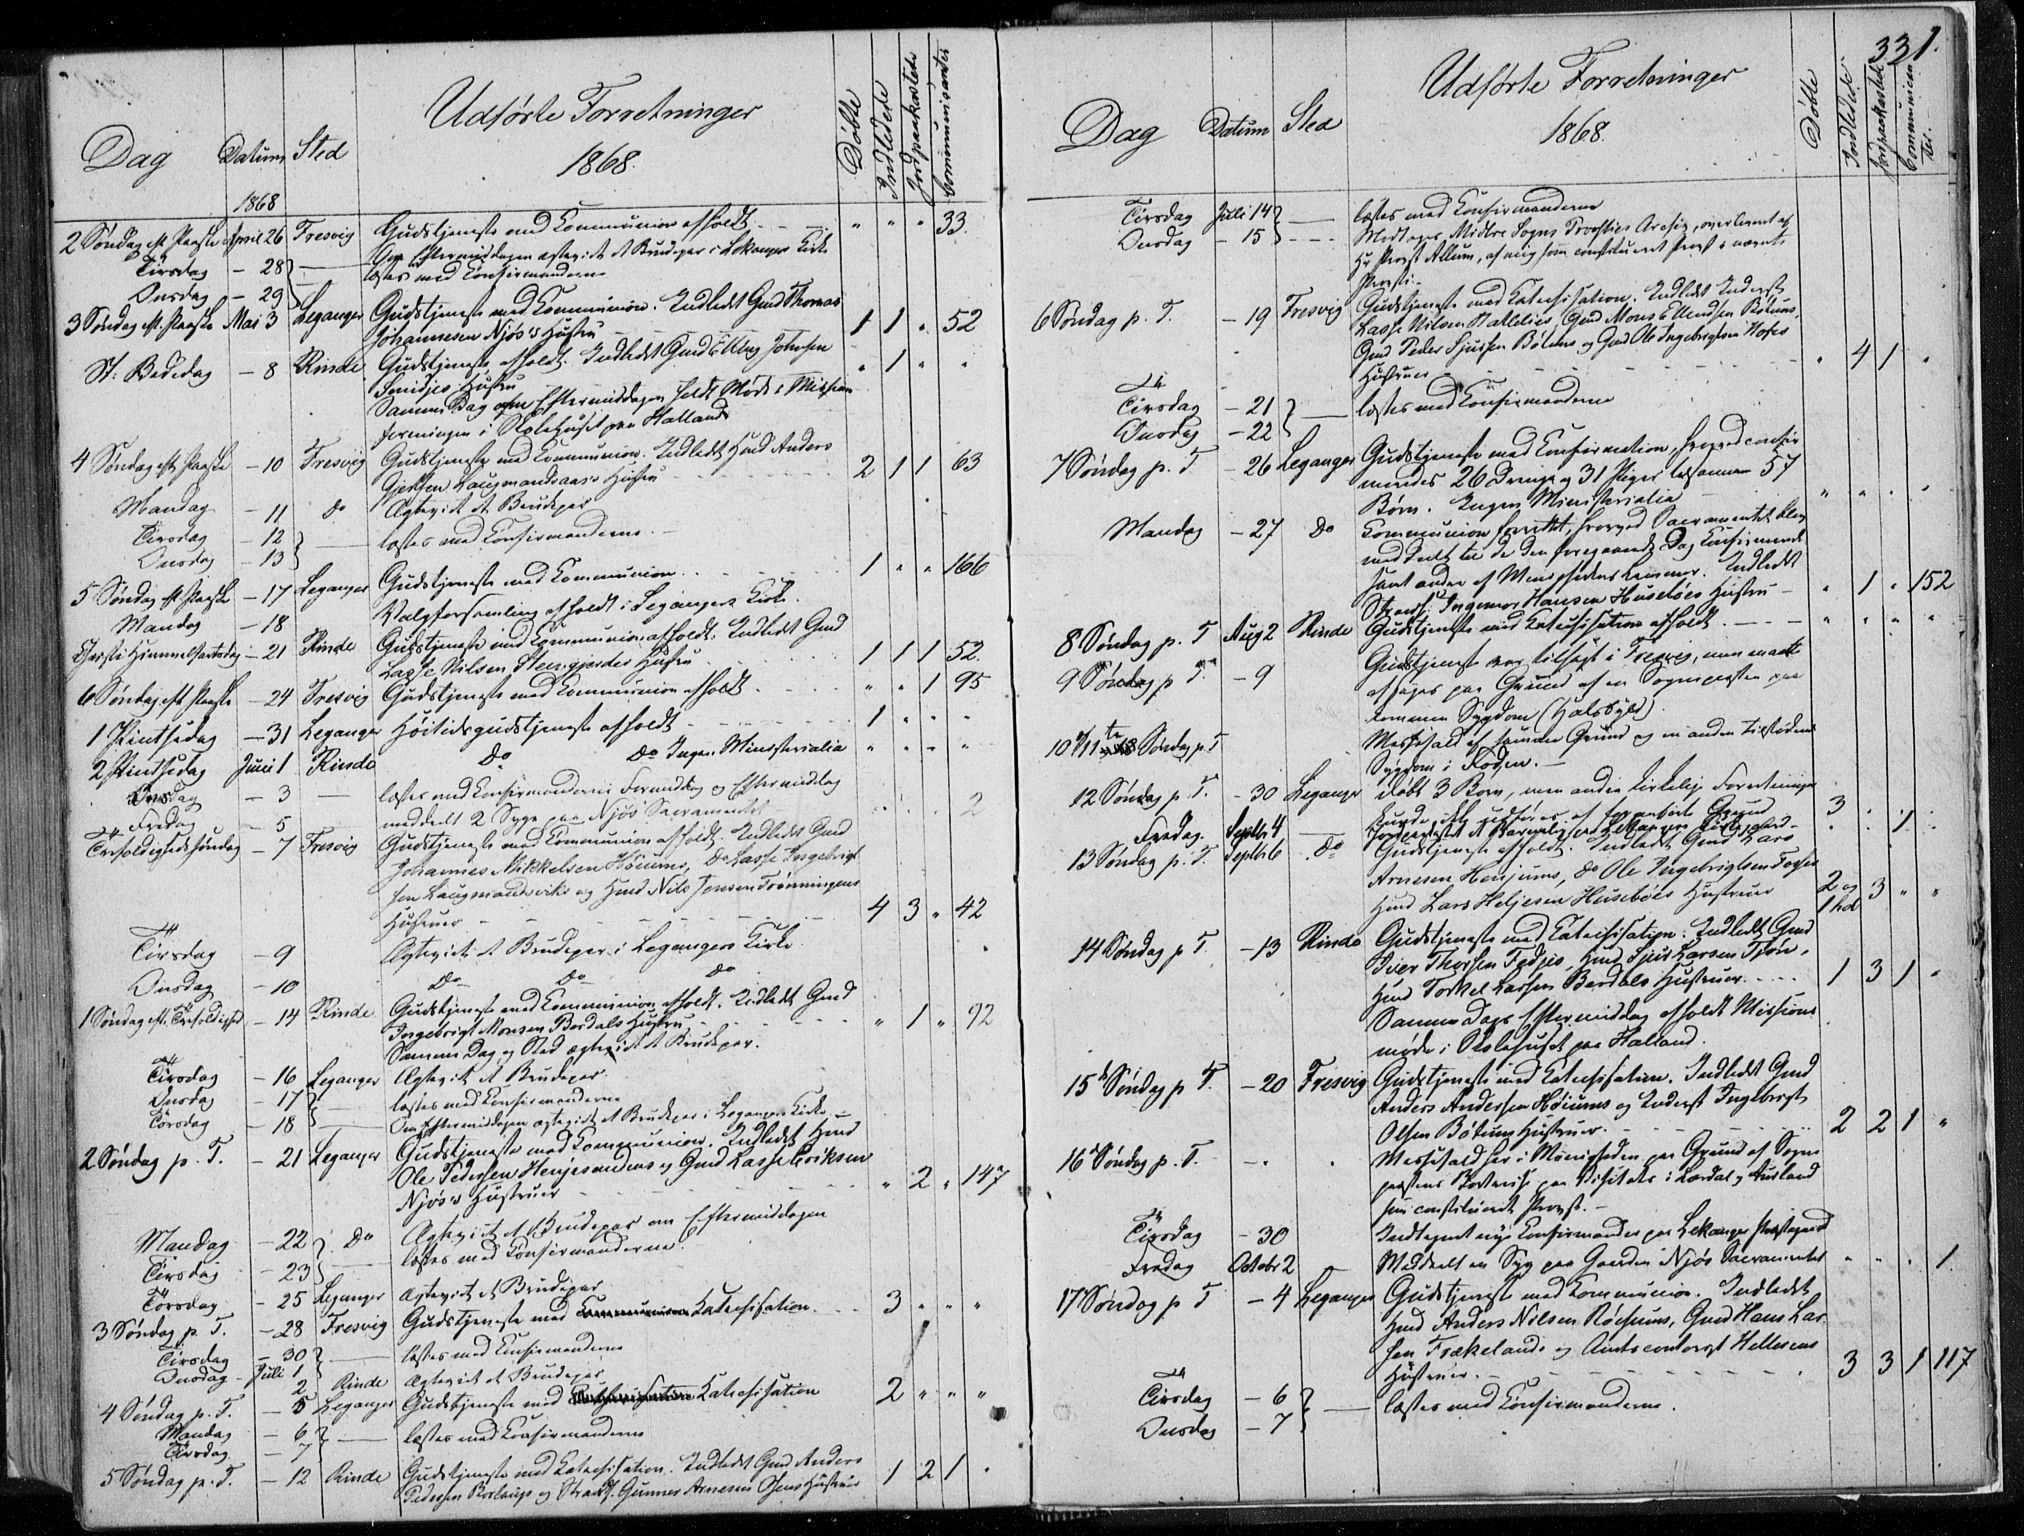 Udførte Forretninger
1868.
Dag Datum Sted Døbte Indledede Jordpaakastede Communicanter
1868
2 Søndag eft. Paaske April 26 Fresvig Gudstjeneste med Communion afholdt - - " " " 33.
Om Eftermiddagen ægteviet et Brudepar i Lekanger Kirke
Tirsdag - 28 læstes med Confirmanderne
Onsdag - 29
3 Søndag eft. Paaske Mai 3 Leganger Gudstjeneste med Communion. Indledt Gmd Thomas
Johannesen Njøs's Hustru 1 1 " 52
St: Bededag - 8 Rinde Gudstjeneste afholdt. Indledt Gmd Elling Johnsen
Smidjes Hustru " 1 " "
Samme Dag om Eftermiddagen holdt Møde i Missions
foreningen i Skolehuset paa Halland
4 Søndag eft. Paaske - 10 Fresvig Gudstjeneste med Communion. Indledt Hmd Anders
Gjertsen Laugmandsaas's Hustru 2 1 1 63
Mandag - 11 Do Ægteviet et Brudepar
Tirsdag - 12 læstes med Confirmanderne -
Onsdag - 13
5 Søndag eft. Paaske - 17 Leganger Gudstjeneste med Communion 1 " " 166
Mandag - 18 Valgforsamling afholdt i Legangers Kirke.
Christi Himmelfartsdag - 21 Rinde Gudstjeneste med Communion afholdt. Indledt Gmd
Lasse Nilsen Steengjerdes Hustru 1 1 1 52
6 Søndag eft. Paaske - 24 Fresvig Gudstjeneste med Communion afholdt " " 1 95
1 Pintsedag - 31 Leganger Høitidsgudstjeneste afholdt 1 " " "
2 Pintsedag Juni 1 Rinde Do Do Ingen Ministerialia " " " "
Onsdag - 3 læstes med Confirmanderne Formiddag og Eftermiddag
Fredag - 5 meddeelt 2 Syge paa Njøs Sacramentet 2
Trefoldighedssøndag - 7 Fresvig Gudstjeneste med Communion afholdt. Indledt Gmd
Johannes Mikkelsen Høiums, Do Lasse Ingebrigt
sen Laugmandsviks og Hmd Nils Jensen Trønningens
Hustruer 4 3 " 42
Tirsdag - 9 Ægteviet et Brudepar i Legangers Kirke
Onsdag - 10 Do Do Do
1 Søndag eft. Trefoldighed - 14 Rinde Gudstjeneste med Communion afholdt. Indledt Gmd
Ingebrigt Monsen Bordals Hustru " 1 " 92
Samme Dag og Sted ægteviet et Brudepar.
Tirsdag - 16 Leganger Ægteviet et Brudepar
Onsdag - 17 læstes med Confirmanderne
Torsdag - 18 Om Eftermiddagen ægteviet et Brudepar i Leganger Kirke
2 Søndag p. T. - 21 Leganger Gudstjeneste med Communion. Indledet Hmd
Ole Pedersen Henjesandens og Gmd Lasse Eriksen
Njøs's Hustruer " 2 " 147
Mandag - 22 Do Ægteviet et Brudepar om Eftermiddagen
Tirsdag - 23 læstes med Confirmanderne.
Torsdag - 25 Leganger Ægteviet et Brudepar
3 Søndag p. T. - 28 Fresvig Gudstjeneste med Communion Katechisation. 3 " " "
Tirsdag - 30 læstes med Confirmanderne
Onsdag - Juli 1
2 Rinde Ægteviet et Brudepar
4 Søndag p. T. - 5 Leganger Gudstjeneste med Katechisation 2 " " "
Mandag - 6 læstes med Confirmanderne
Tirsdag - 7
5 Søndag p. T. - 12 Rinde Gudstjeneste med Katechisation. Indledt Gmd Anders
Pedersen Borlaugs og Strands. Gunner Arnesens Hustruer 1 2 1 "
331.
Udførte Forretninger
1868.
Dag Datum Sted Døbte Indledede Jordpaakastede Communicanter.
Tirsdag Juli 14 læstes med Confirmanderne
Onsdag - 15 Modtages Midtre Sogns Provsties Archiv, overleveret af
Hr Provst Allum, af mig som constitueret Provst i nævnte
Provsti. -
6 Søndag p. T. - 19 Fresvig Gudstjeneste med Katechisation. Indledt Inderst
Lasse Nilsen Hatlelies, Gmd Mons Ellendsen Bøtums,
Gmd Peder Sjursen Bøtuns og Gmd Ole Ingebrigtsen Hofes
Hustruer " 4 1 "
Tirsdag - 21 læstes med Confirmanderne
Onsdag - 22
7 Søndag p. T - 26 Leganger Gudstjeneste med Confirmation, hvorved confir
meredes 26 Drenge og 31 Piger tilsammen 57
Børn. Ingen Ministerialia " " " "
Mandag - 27 Do Communion forrettet, hvorved Sacramentet blev
meddeelt til de den foregaaende Dag Confirmerede
samt andre af Menighedens Lemmer. Indledt
Strands. Ingemor Hansen Husebøes Hustru - " 1 " 152
8 Søndag p. T Aug 2 Rinde Gudstjeneste med Katechisation afholdt. " " " "
9 Søndag p T. - 9 Gudstjeneste var tilsagt i Fresvig, men maatte
afsiges paa Grund af en Sognepresten paa
kommen Sygdom (Halsbyld).
10 & 11te Søndag p. T Messefald af samme Grund og en anden tilstødende
Sygdom i Foden. -
12 Søndag p. T. - 30 Leganger døbt 3 Børn, men andre kirkelige Forretninger
kunde ikke udføres af foranførte Grund 3 " " "
Fredag. Septbr 4 Jordpaakastet et Barnelig paa Lekanger Kirkegaard - . . 1
13 Søndag p. T. Septbr 6 Do Gudstjeneste afholdt. Indledt Gmd Lars
Arnesen Henjums, Do Ole Ingebrigtsens
Hmd Lars Heljesen Husebøes Hustruer 2 og 1 hd 3 " "
14 Søndag p T. - 13 Rinde Gudstjeneste med Katechisation. Indledt Gmd
Iver Thorsen Fedjes, Hmd Sjur Larsen Tjøn,
Hmd Torkel Larsen Bardals Hustruer 1 3 1 "
Samme Dags Eftermiddag afholdt Missions
møde i Skolehuset paa Halland.
15de Søndag p T. - 20 Fresvig Gudstjeneste med Katechisation. Indledt Gmd
Anders Andersen Høiums og Inderst Ingebrigt
Olsen Bøtums Hustruer. 2 2 1 "
16 Søndag p. T. - . Messefald her i Menigheden paa Grund af Sogne
prestens Fraværelse paa Visitats i Lærdal og Aurland
som constitueret Provst. -
Tirsdag - 30 Indtegnet nye Confirmander paa Lekanger Prestegaard
Fredag Octobr 2 Meddeelt en Syg paa Gaarden Njøs Sacramentet " " " 1.
17 Søndag p T - 4 Leganger Gudstjeneste med Communion. Indledt
Hmd Anders Nilsen Røesums, Gmd Hans Lar
sen Frækelands og Amtscontorist Hellesens
Hustruer. 3 3 1 117
Tirsdag - 6 læstes med Confirmanderne.
Onsdag - 7